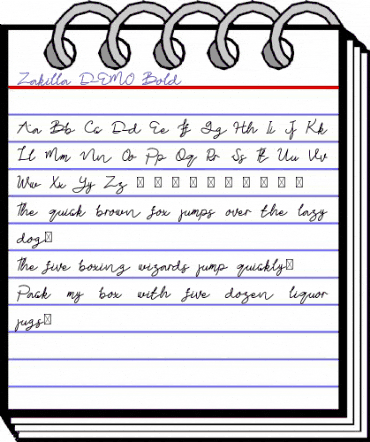 Zakilla DEMO Bold
Aa Bb Cc Dd Ee Ff Gg Hh Ii Jj Kk
Ll Mm Nn Oo Pp Qq Rr Ss Tt Uu Vv
Ww Xx Yy Zz
The quick brown fox jumps over the lazy
dog
The five boxing wizards jump quickly
Pack my box with five dozen liquor
jugs